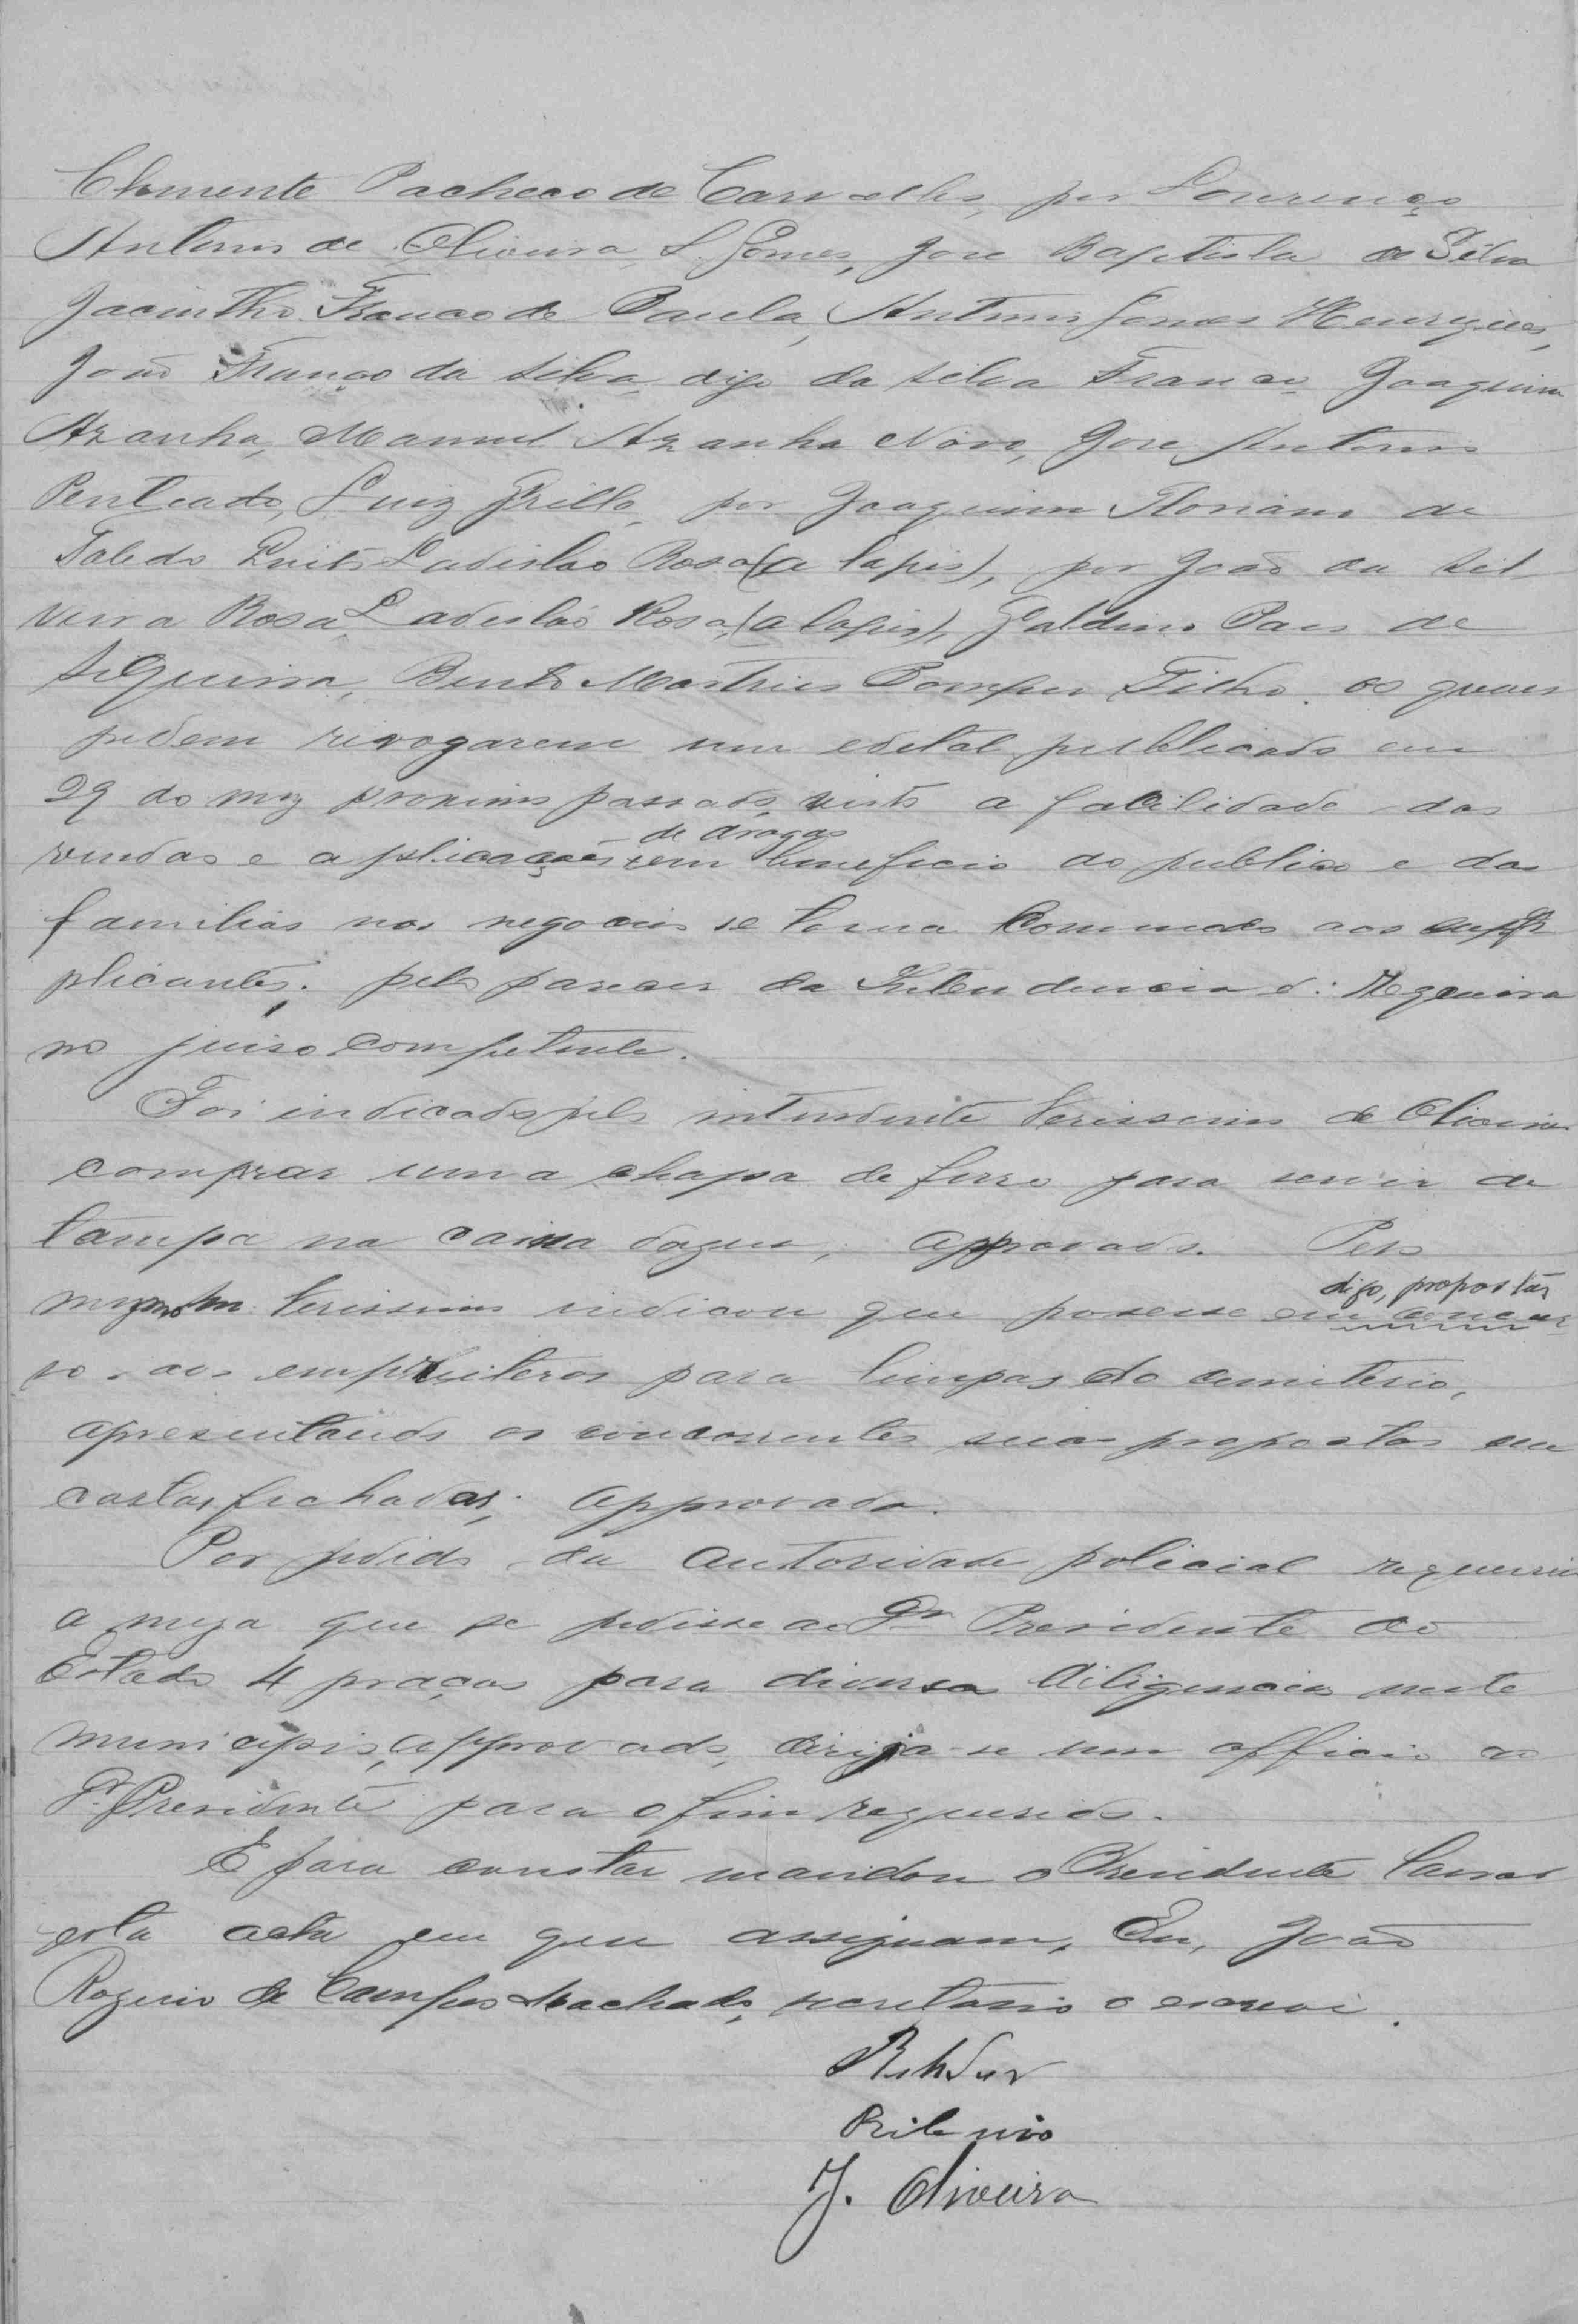 Clemente Pacheco de Carvalho, por Lourenço
Antonio de Oliveira, L. Gomes, Jose Baptista da Silva
Jacintho Franco de Paula, Antonio Gomes Henriques,
João Franco da Silva, digo da Silva Franco, Joaquim
Aranha, Manuel Aranha Novo, Jose Antonio
Penteado, Luiz Grillo, por Joaquim Floriano de
Toledo Ladislao Rosa (a lapis), por João da Sil
veira Rosa Ladislao Rosa (a lapis), Galdino Paes de
Siqueira, Bento Martins Pompeu Filho. os quaes
pedem revogarem um edital publicado em
29 do mez proximo passado, visto a facilidade das
vendas e aplicações de drogas em beneficio do publico e das
familias nos negocios se torna commodo aos sup
plicantes; pelo parecer da Intendencia é: Requeira
no juiso competente.
Foi indicado pelo intendente Verissimo de Oliveira
comprar uma chapa de ferro para servir de
tampa na caixa dagua; approvado. Pelo
mesmo Verissimo indicou que posesse em concur digo, propostas
so aos empreiteros para limpas do cemiterio,
apresentando os concorrentes suas propostas em
cartas fechadas; approvada.
Por pedido da autoridade policial requereu
a meza que se pedisse ao Dr Presidente do
Estado 4 praças para diversa diligencias neste
municipio, approvado, dirija-se um officio ao
Dr. Presidente para o fim requerido.
E para constar mandou o Presidente lavrar
esta acta em que assignam. Eu, João
Rogerio de Campos Machado, secretario o escrevi.
J. Oliveira